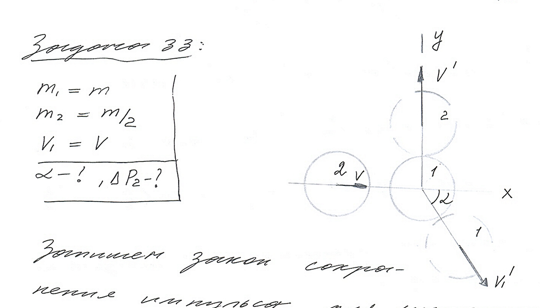 Задача 33:
m₁ = m
m₂ = m/2
V₁ = V
α - ? , ΔP₂ - ?
y
V'
2
2 V
1
x
α
1
V₁'
Запишем закон сохра-
нения импульса